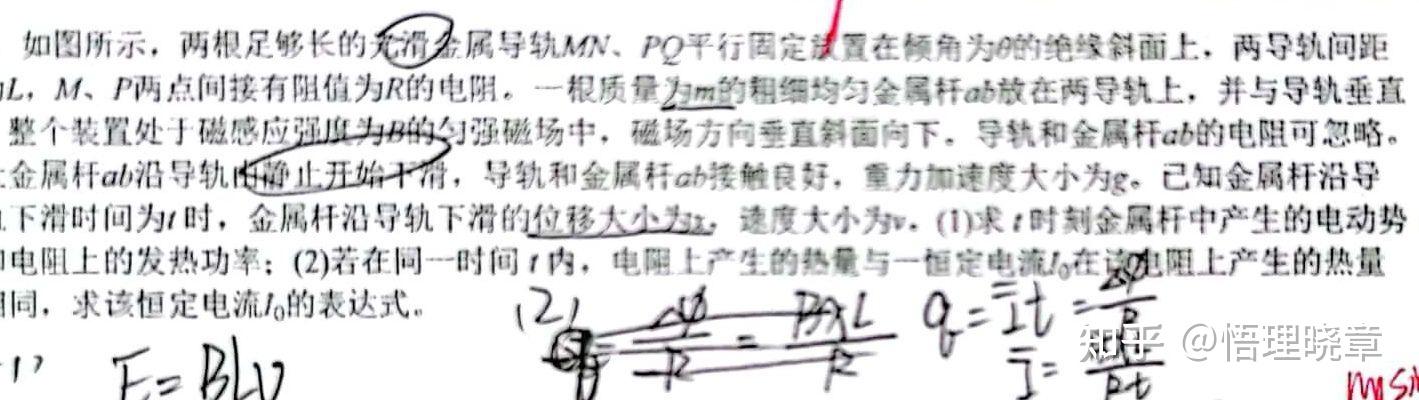 如图所示，两根足够长的光滑金属导轨MN、PQ平行固定放置在倾角为θ的绝缘斜面上，两导轨间距
L，M、P两点间接有阻值为R的电阻。一根质量为m的粗细均匀金属杆ab放在两导轨上，并与导轨垂直
整个装置处于磁感应强度为B的匀强磁场中，磁场方向垂直斜面向下．导轨和金属杆ab的电阻可忽略。
金属杆ab沿导轨由静止开始下滑，导轨和金属杆ab接触良好，重力加速度大小为g。已知金属杆沿导
下滑时间为t时，金属杆沿导轨下滑的位移大小为x，速度大小为v．(1)求t时刻金属杆中产生的电动势
电阻上的发热功率；(2)若在同一时间t内，电阻上产生的热量与一恒定电流I₀在该电阻上产生的热量
同，求该恒定电流I₀的表达式。
(2) = Δφ/R = BxL/R q = I̅t = Δφ/R
E = BLv I̅ = /Rt
知乎 @悟理晓章